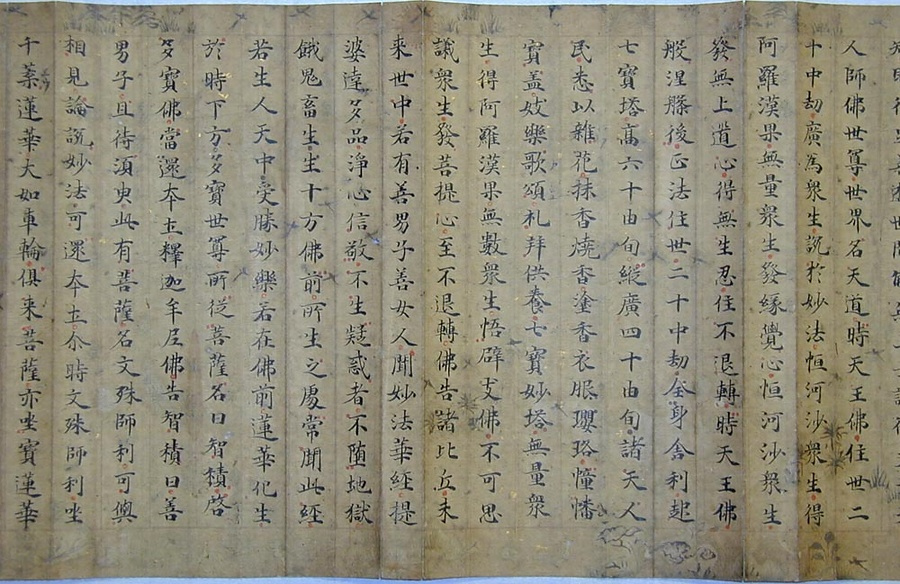 人師佛世尊世界名天道時天王佛住世二
十中劫廣為衆生說於妙法恒河沙衆生得
阿羅漢果無量衆生發緣覺心恒河沙衆生
發無上道心得無生忍住不退轉時天王佛
般涅槃後正法住世二十中劫全身舍利起
七寶塔高六十由旬縱廣四十由旬諸天人
民悉以雜花抹香燒香塗香衣服瓔珞幢幡
寶蓋妓樂歌頌礼拜供養七寶妙塔無量衆
生得阿羅漢果無數衆生悟辟支佛不可思
議衆生發菩提心至不退轉佛告諸比丘未
来世中若有善男子善女人聞妙法華經提
婆達多品淨心信敬不生疑惑者不墮地獄
餓鬼畜生生十方佛前所生之處常聞此經
若生人天中受勝妙樂若在佛前蓮華化生
於時下方多寶世尊所從菩薩名曰智積啓
多寶佛當還本土釋迦牟尼佛告智積曰善
男子且待須臾此有菩薩名文殊師利可與
相見論說妙法可還本土尒時文殊師利坐
千葉蓮華大如車輪俱来菩薩亦坐寶蓮華